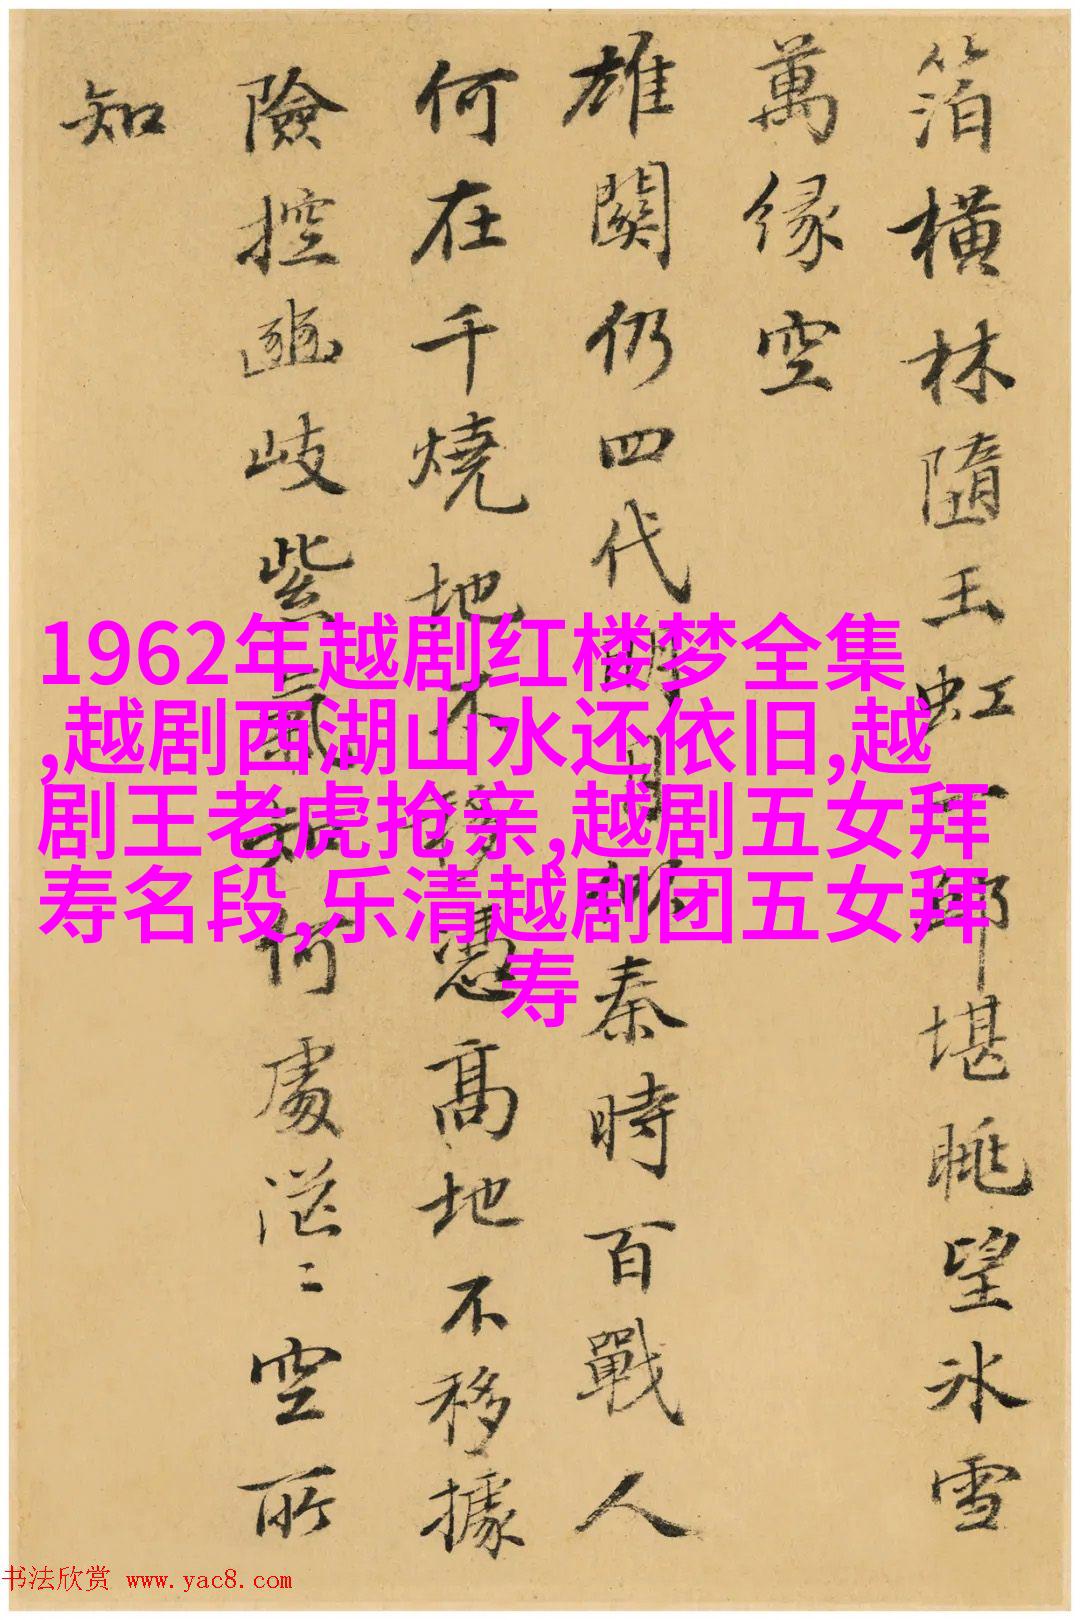 箔橫林隨玉虹一堪眺望冰雪
萬緣空
雄關仍四代明月秦時百戰人
何在千燒地不移憑高地不移據
險控豳岐紫氣知何處茫〻空所
知
1962年越剧红楼梦全集
,越剧西湖山水还依旧,越
剧王老虎抢亲,越剧五女拜
寿名段,乐清越剧团五女拜
寿
书法欣赏 www.yac8.com